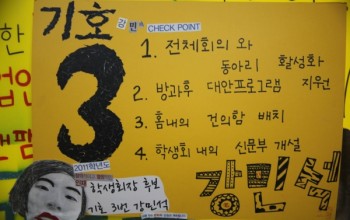 기호
3
강민석 CHECK POINT
1. 전체회의 와
동아리 활성화
2. 방과후 대안프로그램 지원
3. 홈내의 건의함 배치
4. 학생회 내의 신문부 개설
2011학년도
학생회장 후보
기호 3번 강민석
강민석
한